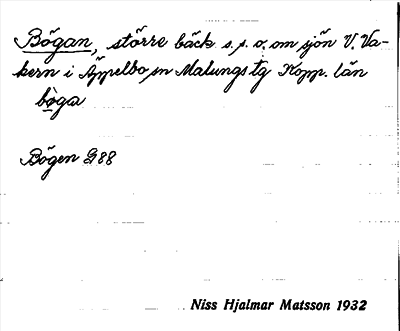 Bögan, större bäck s. s. o. om sjön V. Va-
kern i Äppelbo sn Malungs tg Kopp. län
bòga
Bögen G88
Niss Hjalmar Matsson 1932